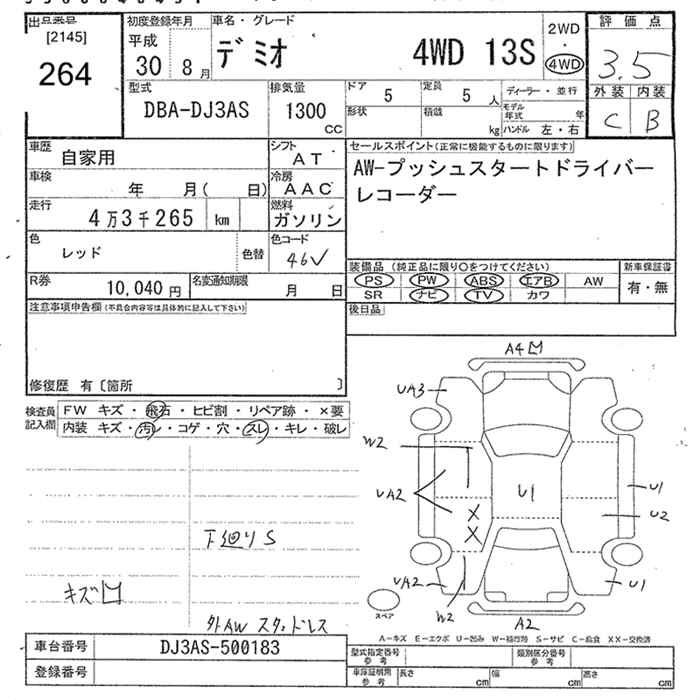 出品番号
[2145]
264
初度登録年月
平成
30 8月
車名・グレード
デミオ 4WD 13S
2WD
・
4WD
評価点
3.5
外装 内装
C B
型式
DBA-DJ3AS
排気量
1300
CC
ドア 5
定員 5 人
ディーラー・並行
形状
積載 kg
モデル年式 年
ハンドル 左・右
車歴 自家用
シフト AT
車検 年 月( 日)
冷房 AAC
走行 4万3千265 km
燃料 ガソリン
色 レッド
色替
色コード 46V
R券 10,040 円
名変通知期限 月 日
セールスポイント(正常に機能するものに限ります)
AW-プッシュスタートドライバー
レコーダー
装備品 (純正品に限り○をつけてください)
新車保証書
PS PW ABS エアB AW
有・無
SR ナビ TV カワ
後日品
注意事項申告欄(不具合内容等は具体的に記入して下さい)
修復歴 有〔箇所 〕
検査員記入欄
FW キズ・飛石・ヒビ割・リペア跡・×要
内装 キズ・汚レ・コゲ・穴・スレ・キレ・破レ
下廻りS
キズ凹
外AW スタッドレス
A4凹
UA3
W2
UA2
U1
U1
U2
X
X
UA2
W2
U1
A2
スペア
A-キズ E-エクボ U-凹み W-補修跡 S-サビ C-腐食 XX-交換済
車台番号 DJ3AS-500183
登録番号
型式指定番号
参考
類別区分番号
参考
車庫証明用
参考
長さ cm
幅 cm
高さ cm